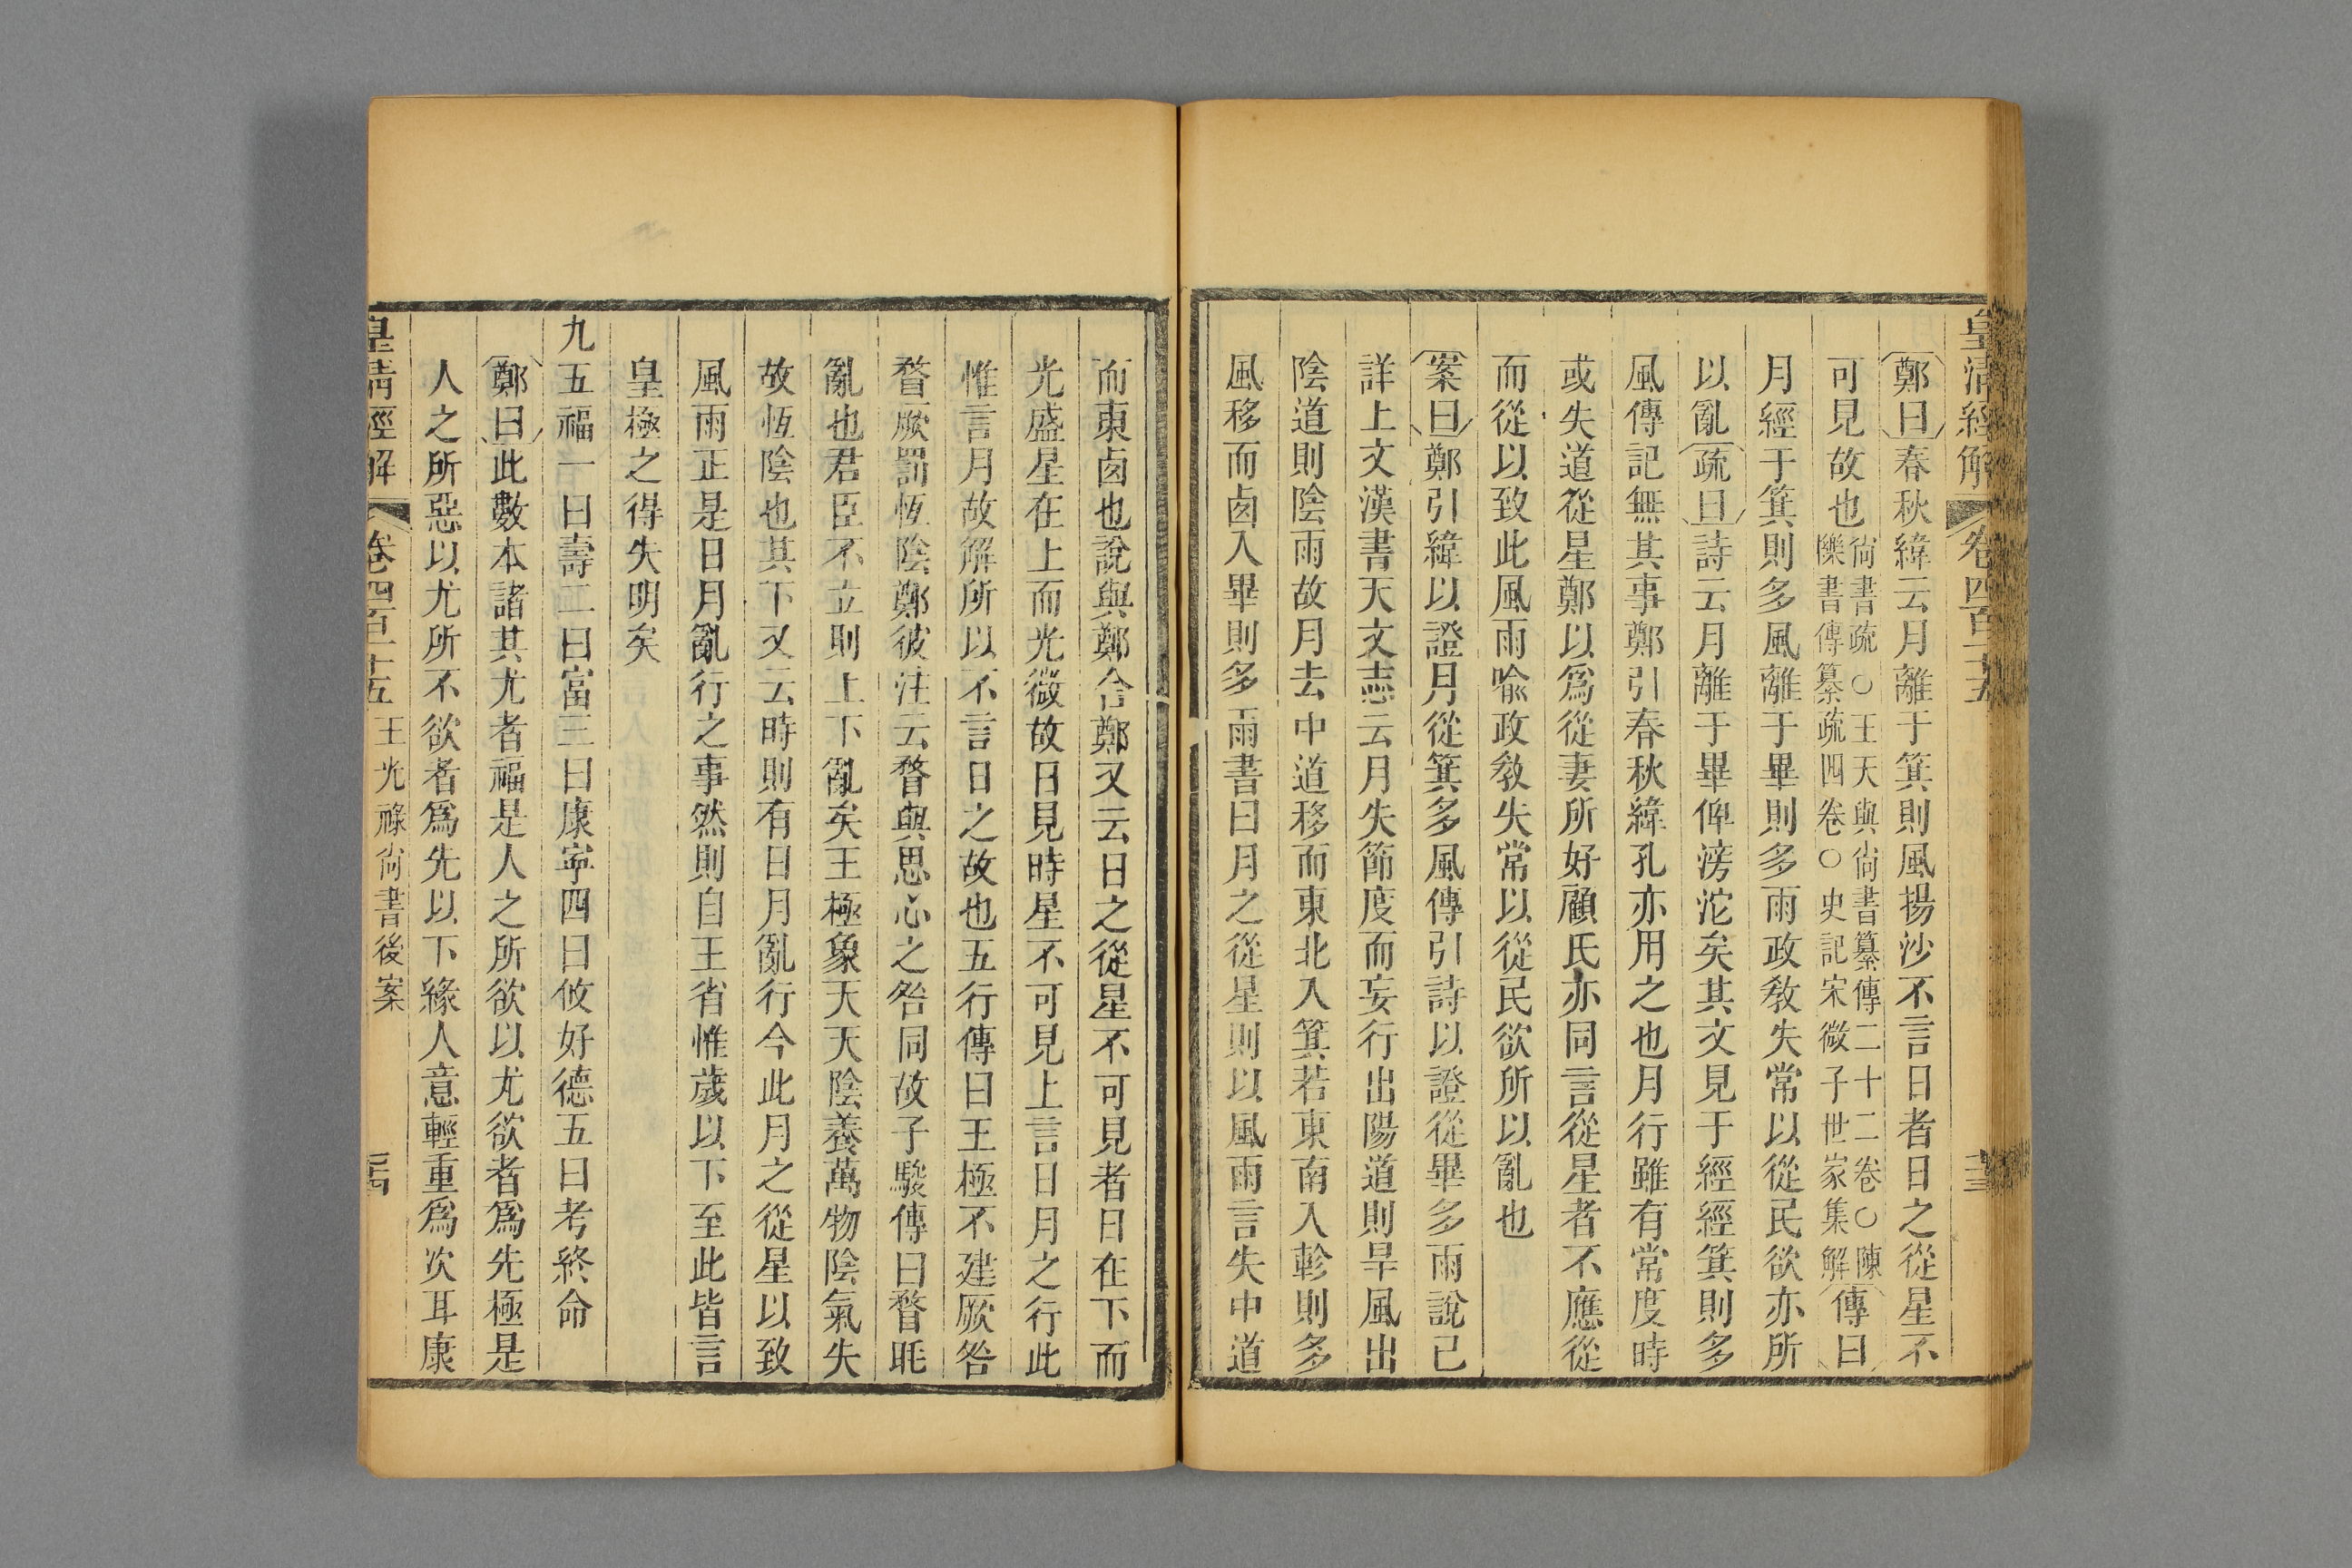 皇清經解 卷四百二十五
鄭曰春秋緯云月離于箕則風揚沙不言日者日之從星不
可見故也尙書疏○王天與尙書纂傳二十二卷○陳
櫟書傳纂疏四卷○史記宋微子世家集解傳曰
月經于箕則多風離于畢則多雨政敎失常以從民欲亦所
以亂疏曰詩云月離于畢俾滂沱矣其文見于經經箕則多
風傳記無其事鄭引春秋緯孔亦用之也月行雖有常度時
或失道從星鄭以爲從妻所好顧氏亦同言從星者不應從
而從以致此風雨喩政敎失常以從民欲所以亂也
案曰鄭引緯以證月從箕多風傳引詩以證從畢多雨說已
詳上文漢書天文志云月失節度而妄行出陽道則旱風出
陰道則陰雨故月去中道移而東北入箕若東南入軫則多
風移而卤入畢則多雨書曰月之從星則以風雨言失中道
而東卤也說與鄭合鄭又云日之從星不可見者日在下而
光盛星在上而光微故日見時星不可見上言日月之行此
惟言月故解所以不言日之故也五行傳曰王極不建厥咎
瞀厥罰恆陰鄭彼注云瞀與思心之咎同故子駿傳曰瞀眊
亂也君臣不立則上下亂矣王極象天天陰養萬物陰氣失
故恆陰也其下又云時則有日月亂行今此月之從星以致
風雨正是日月亂行之事然則自王省惟歲以下至此皆言
皇極之得失明矣
九五福一曰壽二曰富三曰康寧四曰攸好德五曰考終命
鄭曰此數本諸其尤者福是人之所欲以尤欲者爲先極是
人之所惡以尤所不欲者爲先以下緣人意輕重爲次耳康
皇淸經解 卷四百二十五 王光祿尙書後案